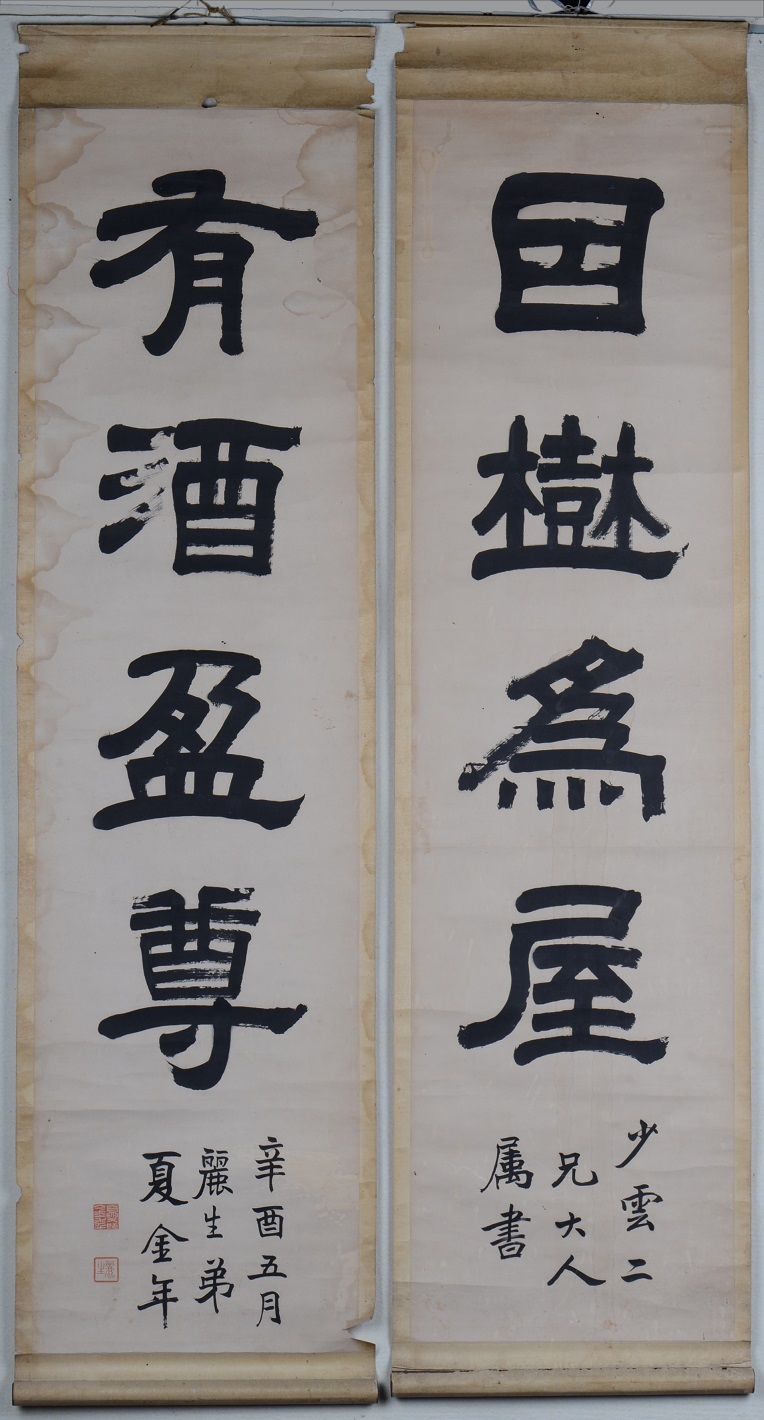 囙樹爲屋
少雲二
兄大人
属書
有酒盈尊
辛酉五月
麗生弟
夏金年